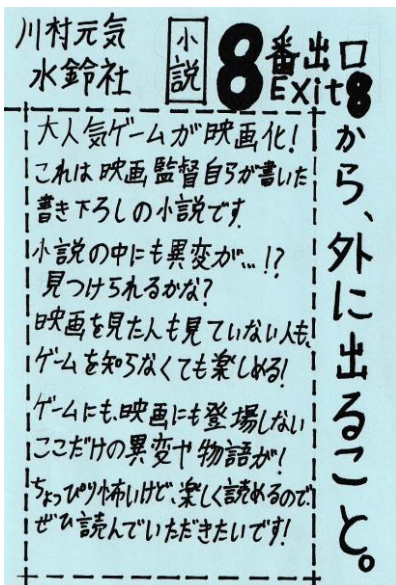 川村元気
水鈴社
小説
8番出口
Exit8
から、外に出ること。
大人気ゲームが映画化!
これは映画監督自らが書いた
書き下ろしの小説です
小説の中にも異変が…!?
見つけられるかな?
映画を見た人も見ていない人も、
ゲームを知らなくても楽しめる!
ゲームにも、映画にも登場しない
ここだけの異変や物語が!
ちょっぴり怖いけど、楽しく読めるので
ぜひ読んでいただきたいです!